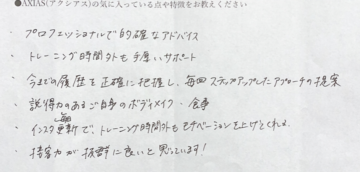 ●AXIAS(アクシアス)の気に入っている点や特徴をお教えください
・プロフェッショナルで的確なアドバイス
・トレーニング時間外も手厚いサポート
・今までの履歴を正確に把握し、毎回ステップアップしたアプローチの提案
・説得力のあるご自身のボディメイク・食事
毎日
・インスタ更新で、トレーニング時間外もモチベーションを上げてくれる
・接客力が抜群に良いと思っています!